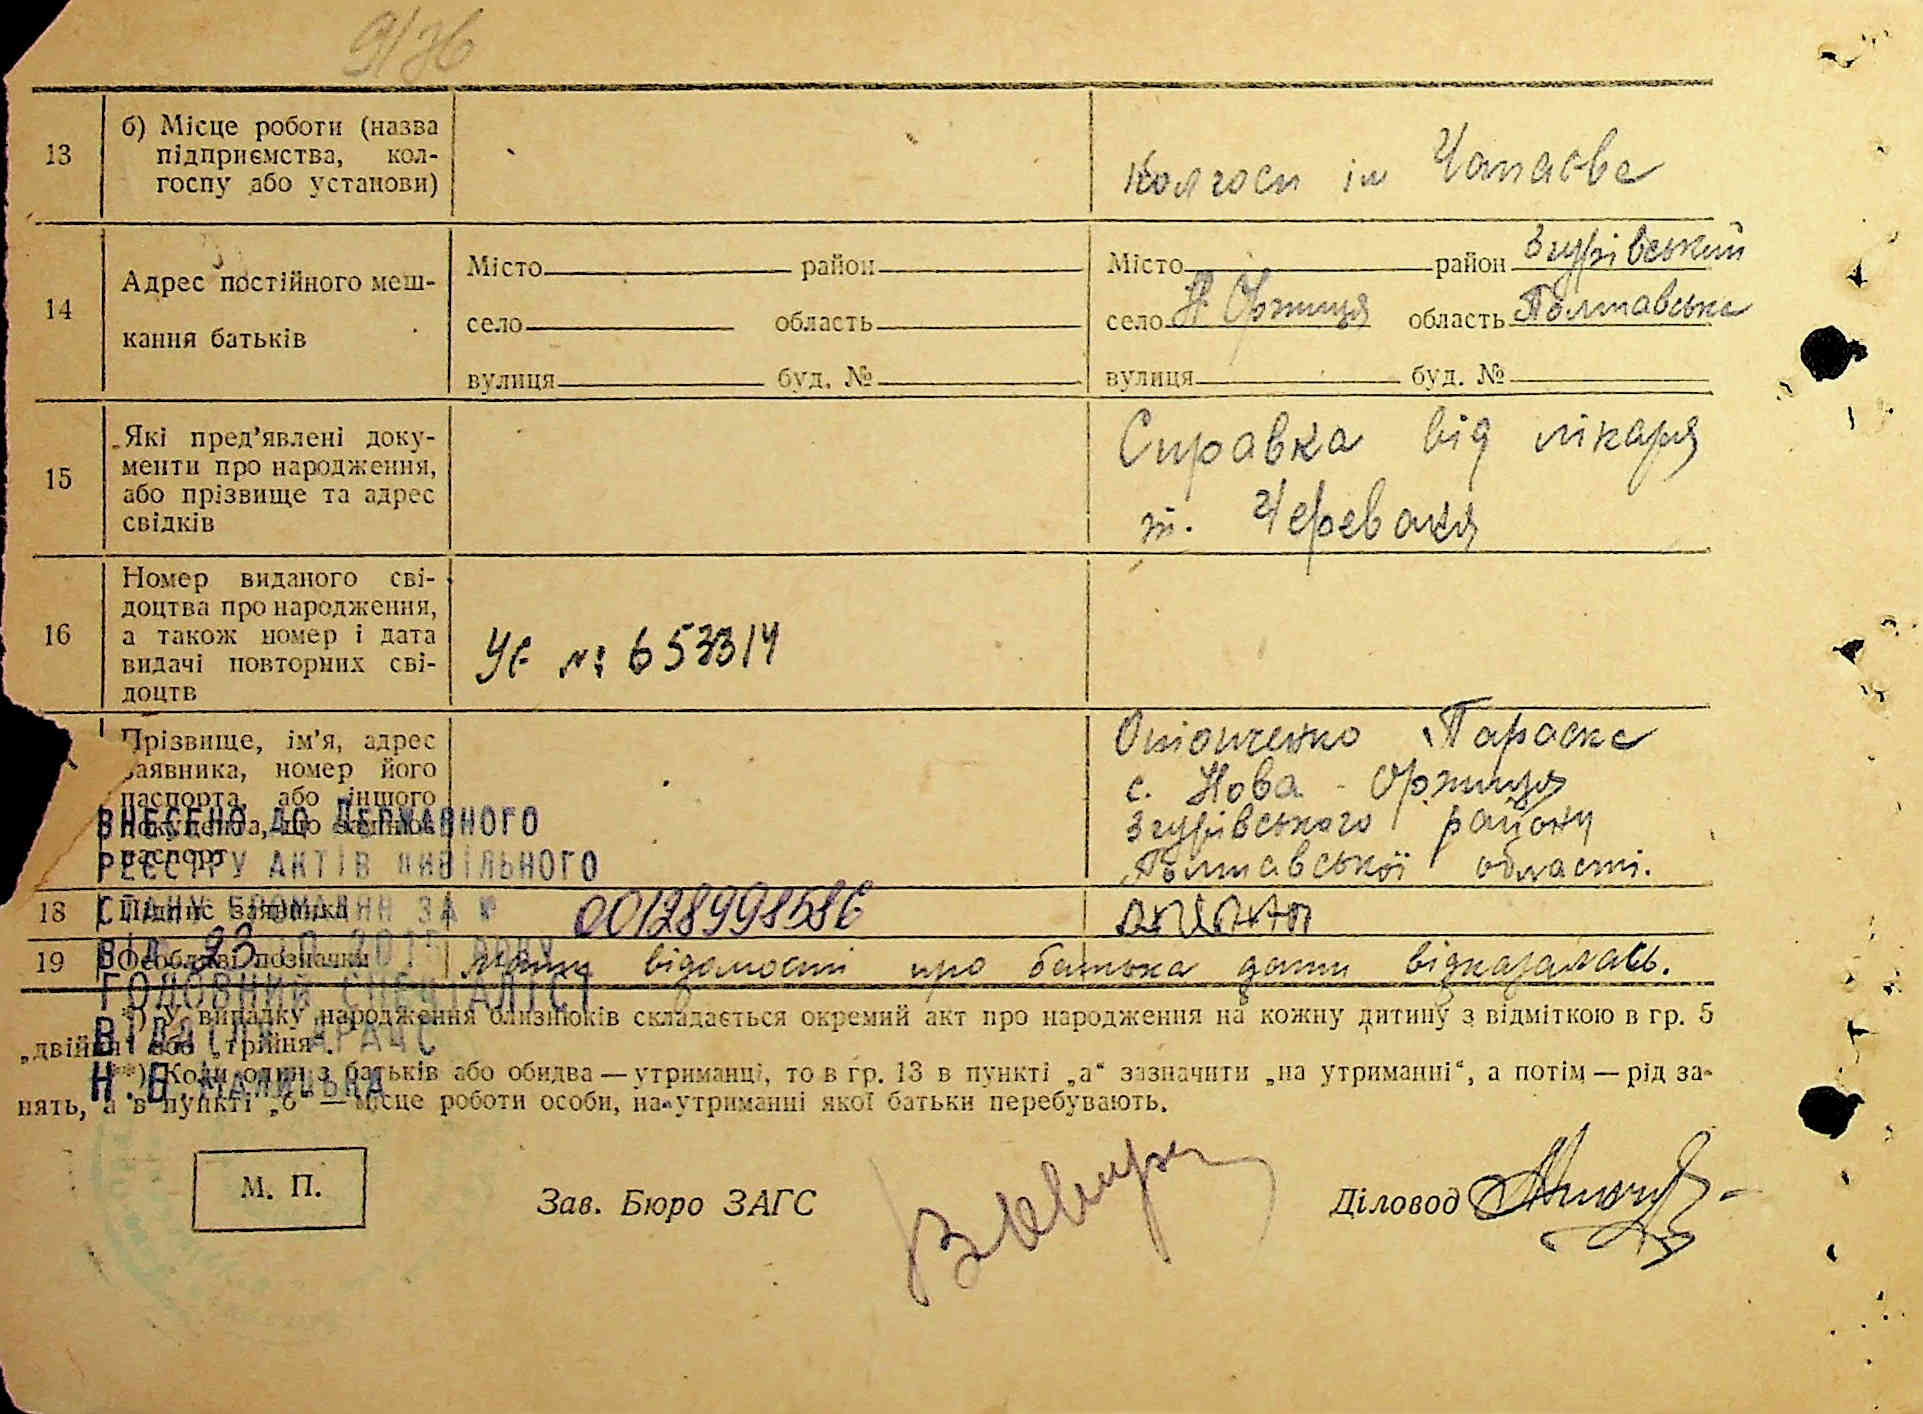 9/76
13
б) Місце роботи (назва
підприємства, кол-
госпу або установи)
Колгосп ім Чапаєва
14
Адрес постійного меш-
кання батьків
Місто район
село область
вулиця буд. №
Місто район Згурівський
село Н Оржиця область Полтавська
вулиця буд. №
15
Які пред’явлені доку-
менти про народження,
або прізвище та адрес
свідків
Справка від лікаря
т. Череваня
16
Номер виданого сві-
доцтва про народження,
а також номер і дата
видачі повторних сві-
доцтв
УЄ № 653314
Прізвище, ім’я, адрес
заявника, номер його
паспорта, або іншого
документа, що замінює
паспорт
Параска
с. Нова Оржиця
Згурівського району
Полтавської області.
ВНЕСЕНО ДО ДЕРЖАВНОГО
РЕЄСТРУ АКТІВ ЦИВІЛЬНОГО
СТАНУ ГРОМАДЯН ЗА № 00128998586
ВІД 23 РОКУ
ГОЛОВНИЙ СПЕЦІАЛІСТ
ВІДДІЛУ ДРАЦС
18
Підпис заявника
19
Особливі позначки
Мати відомості про батька дати відказалась.
*) У випадку народження близнюків складається окремий акт про народження на кожну дитину з відміткою в гр. 5
„двійня“ або „трійня“.
**) Коли один з батьків або обидва — утриманці, то в гр. 13 в пункті „а“ зазначити „на утриманні“, а потім — рід за-
нять, а в пункті „б“ — місце роботи особи, на утриманні якої батьки перебувають.
М. П.
Зав. Бюро ЗАГС
Діловод